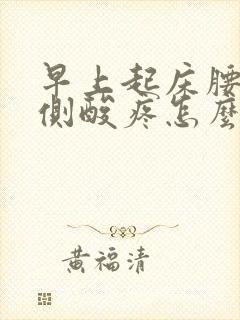 早上起床腰
側酸疼怎麼
黃福清